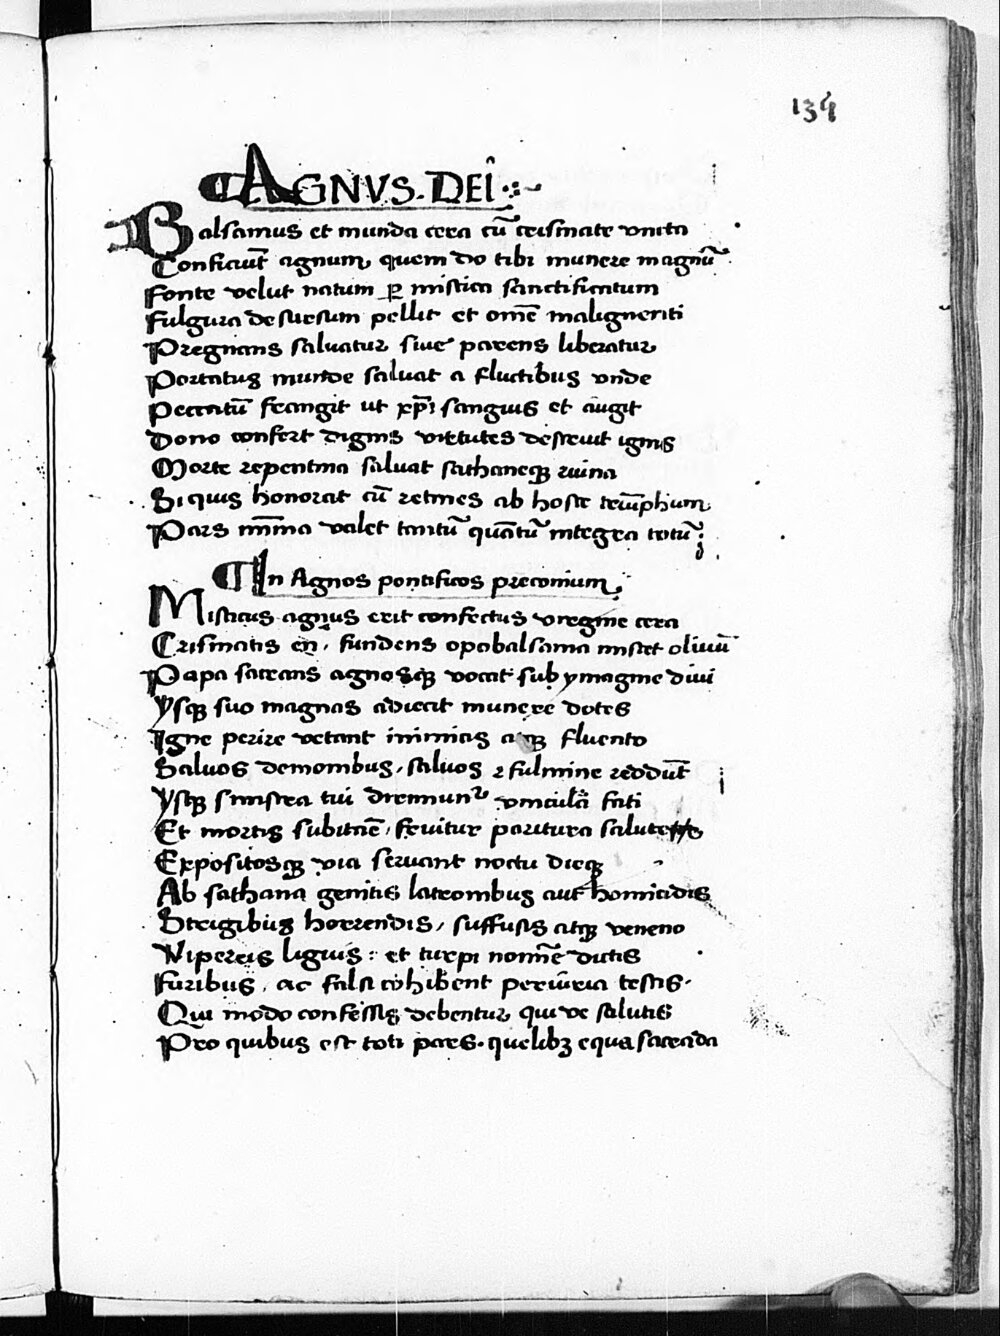 134
AGNVS. DEI
Balsamus et munda cera cū crismate vncta
Conficiūt agnum quem do tibi munere magnū
Fonte velut natum ꝑ mistica sanctificatum
Fulgura desursum pellit et omē maligneriti
Pregnans saluatur siue parens liberatur
Portatus munde saluat a fluctibus vnde
Peccatū frangit ut xp̄i sanguis et angit
Dono confert dignis virtutes destruit ignis
Morte repentina saluat sathaneqꝫ ruina
Si quis honorat cū retines ab hoste triūphum
Pars mīma valet tantū quātū integra totū
In Agnos pontificos preconium
Misticus agnus erit confectus virgine cera
Crismatis en, fundens opobalsama mistet oliuū
Papa sacrans agnosqꝫ vocat sub ymagine diui
Ysqꝫ suo magnas adiecit munere dotes
Igne perire vetant inimias atqꝫ fluento
Saluos demonibus, saluos ⁊ fulmine reddūt
Ysqꝫ sinistra tui vincula fati
Et mortis subitāe, fruitur paritura salute
Expositosqꝫ via seruant noctu dieqꝫ
Ab sathana genitis latronibus aut homicidis
Strigibus horrendis, suffusis atqꝫ veneno
Vipereis liguis: et turpi nomīe dictis
Furibus, ac falsi cohibent periuria testis.
Qui modo confessis debentur qui ve salutis
Pro quibus est toti pares. quelibꝫ equa sacrada